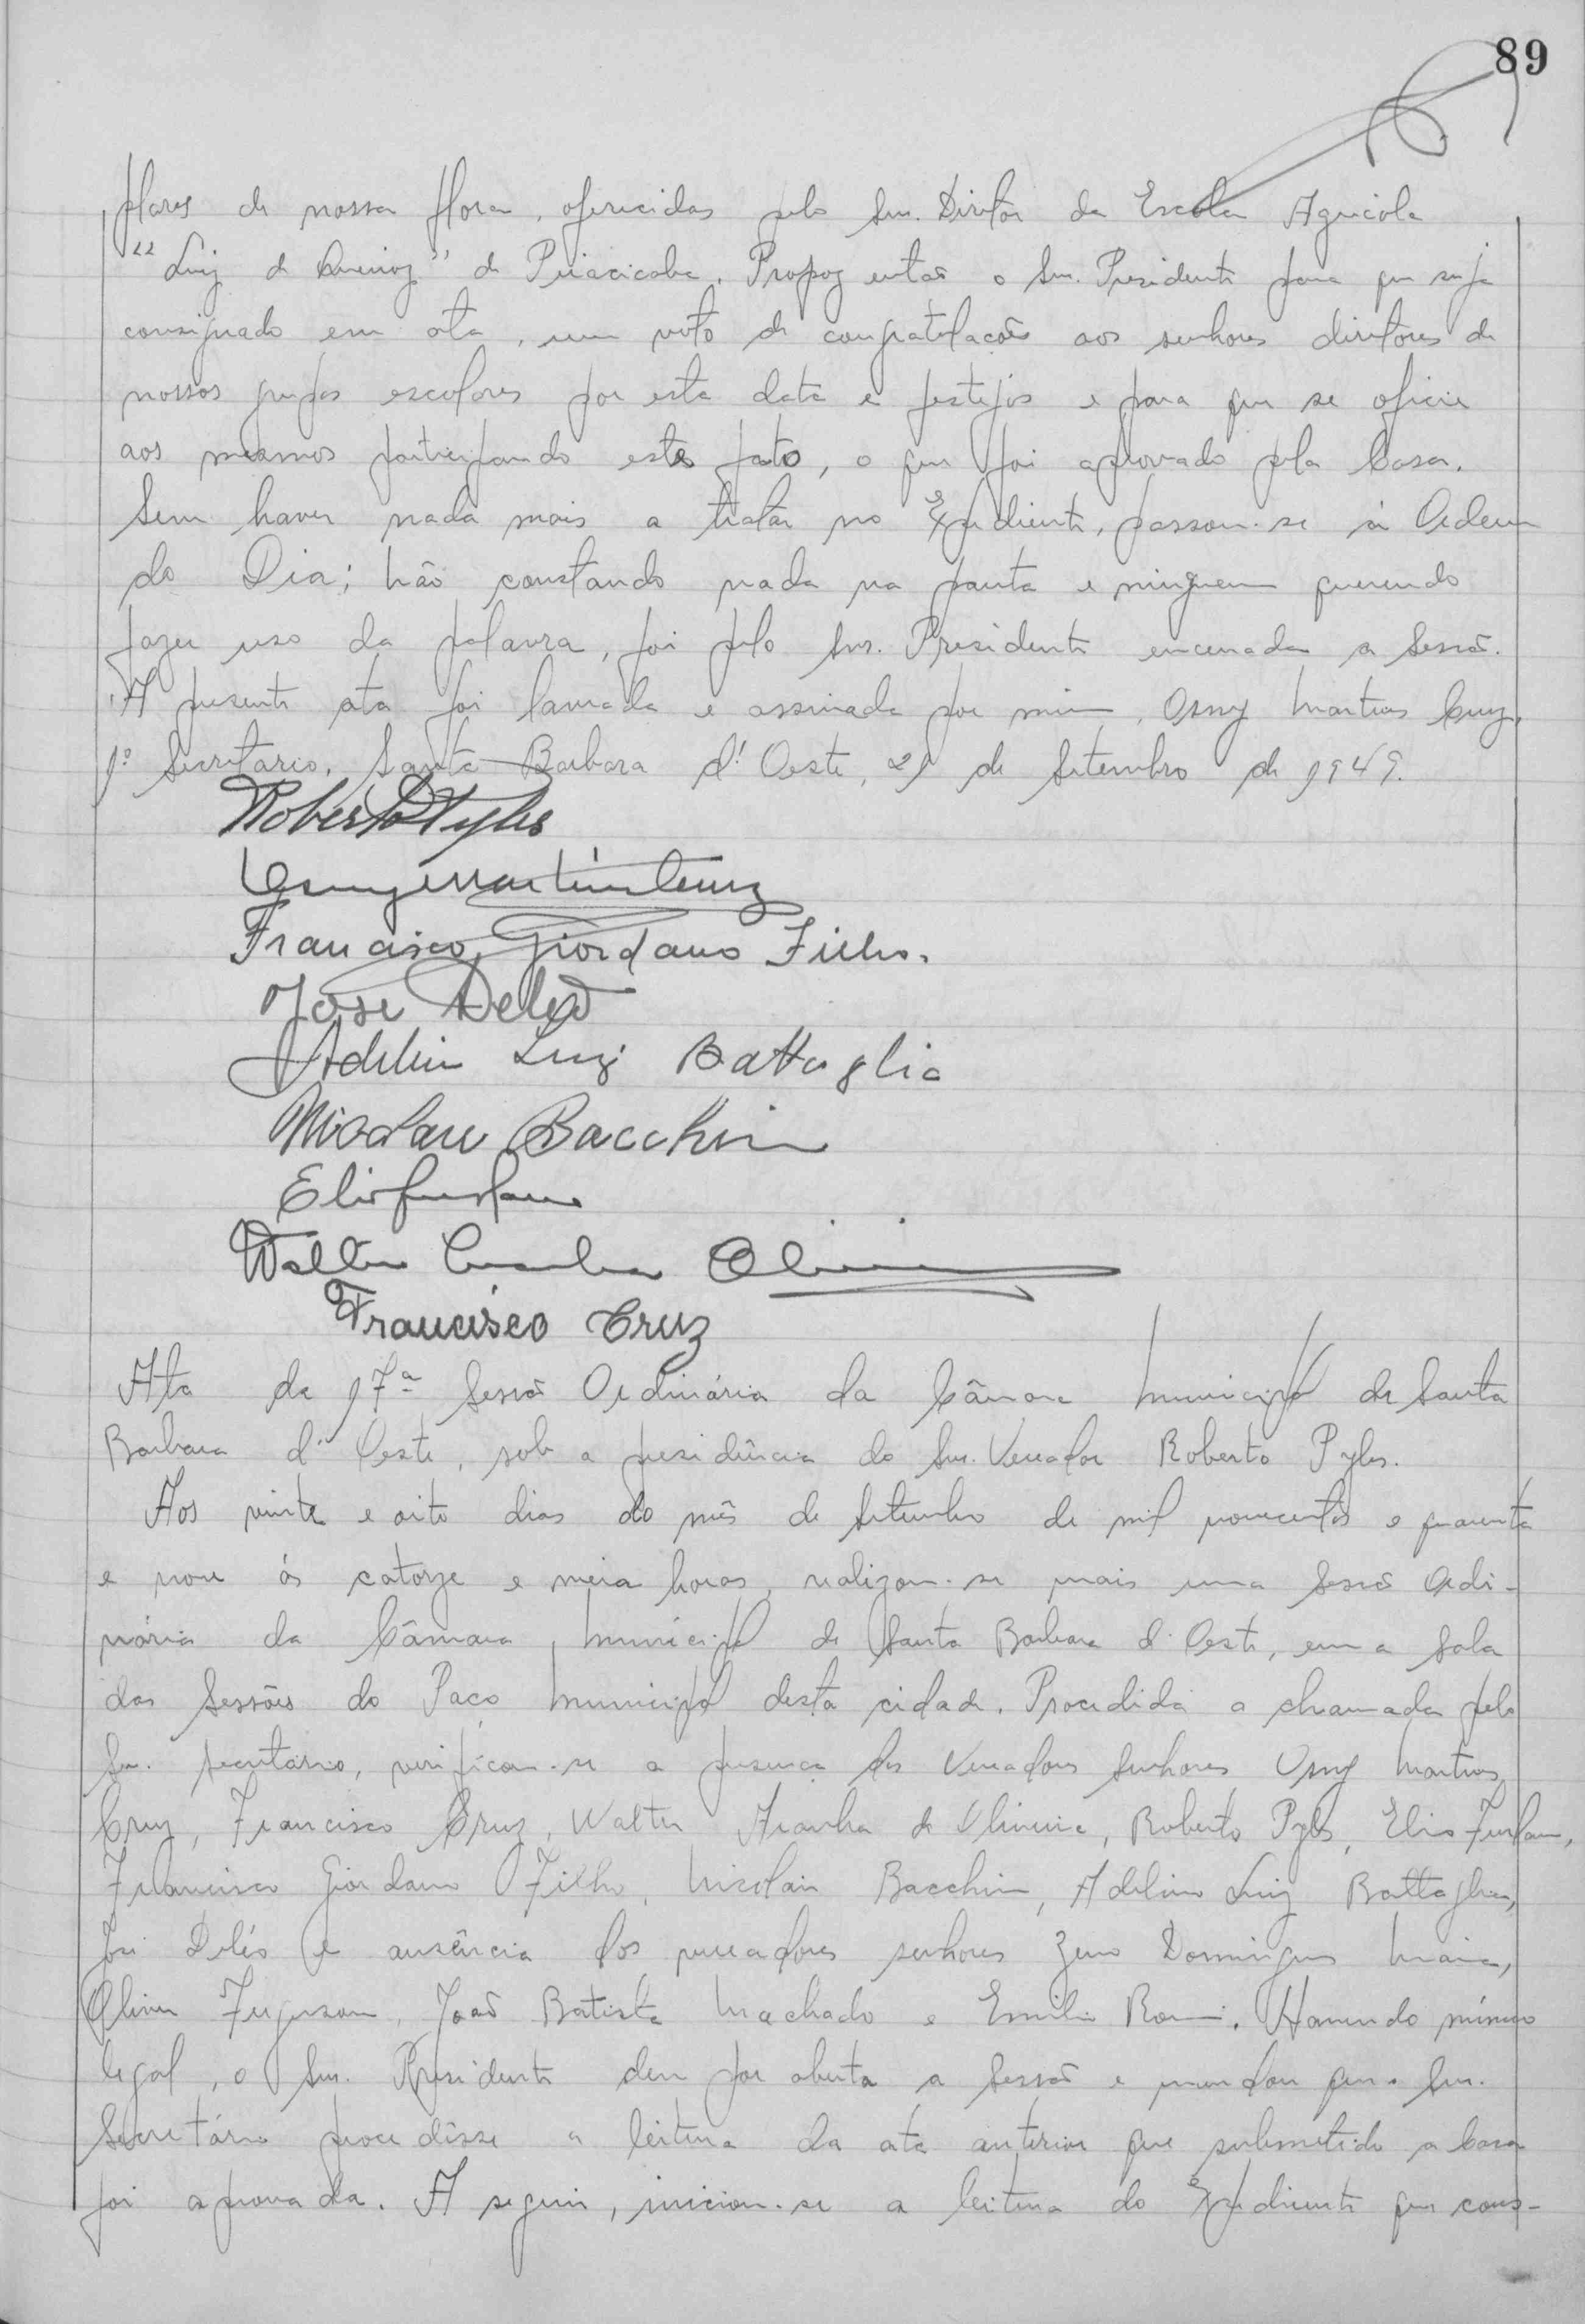 89
plares de nossa flora, oferecidas pelo Snr. Diretor da Escola Agricola
"Luiz de Queiroz" de Piracicaba. Propoz então o Snr. Presidente para que seja
consignado em ata, um voto de congratulacões aos senhores diretores de
nossos grupos escolares por esta data e festejos e para que se oficie
aos mesmos participando este fato, o que foi aprovado pela Casa.
Sem haver nada mais a tratar no Expediente, passou-se à Ordem
do Dia; não constando nada na pauta e ninguem querendo
fazer uso da palavra, foi pelo Snr. Presidente encerrada a Sessão.
A presente ata foi lavrada e assinada por mim, Osny Martins Cruz,
1º Secretario. Santa Barbara d'Oeste, 21 de Setembro de 1949.
Roberto Pyles
Osny Martins Cruz
Francisco Giordano Filho.
José Deleó
Adelino Luiz Battaglia
Nicolau Bacchin
Elio Furlan
Walter Aranha Oliveira
Francisco Cruz
Ata da 17ª Sessão Ordinária da Câmara Municipal de Santa
Barbara d'Oeste, sob a presidência do Snr. Vereador Roberto Pyles.
Aos vinte e oito dias do mês de Setembro de mil novecentos e quarenta
e nove ás catorze e meia horas, realizou-se mais uma Sessão Ordi-
nária da Câmara Municipal de Santa Barbara d'Oeste, em a sala
das Sessões do Paço Municipal desta cidade. Procedida a chamada pelo
Snr. Secretário, verificou-se a presença dos Vereadores Senhores Osny Martins
Cruz, Francisco Cruz, Walter Aranha de Oliveira, Roberto Pyles, Elio Furlan,
Francisco Giordano Filho, Nicolau Bacchin, Adelino Luiz Battaglia,
José Deléo e ausência dos vereadores senhores Zeno Domingues Maia,
Oliver Ferguson, João Batista Machado e Emilio Romi. Havendo número
legal, o Snr. Presidente deu por aberta a Sessão e mandou que o Snr.
Secretário procedêsse a leitura da ata anterior que submetida a Casa
foi aprovada. A seguir, iniciou-se a leitura do Expediente que cons-